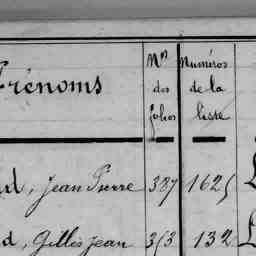 Prénoms
Nos des folios
Numéros de la liste
Jean Pierre 387 1625
Gilles jean 353 132